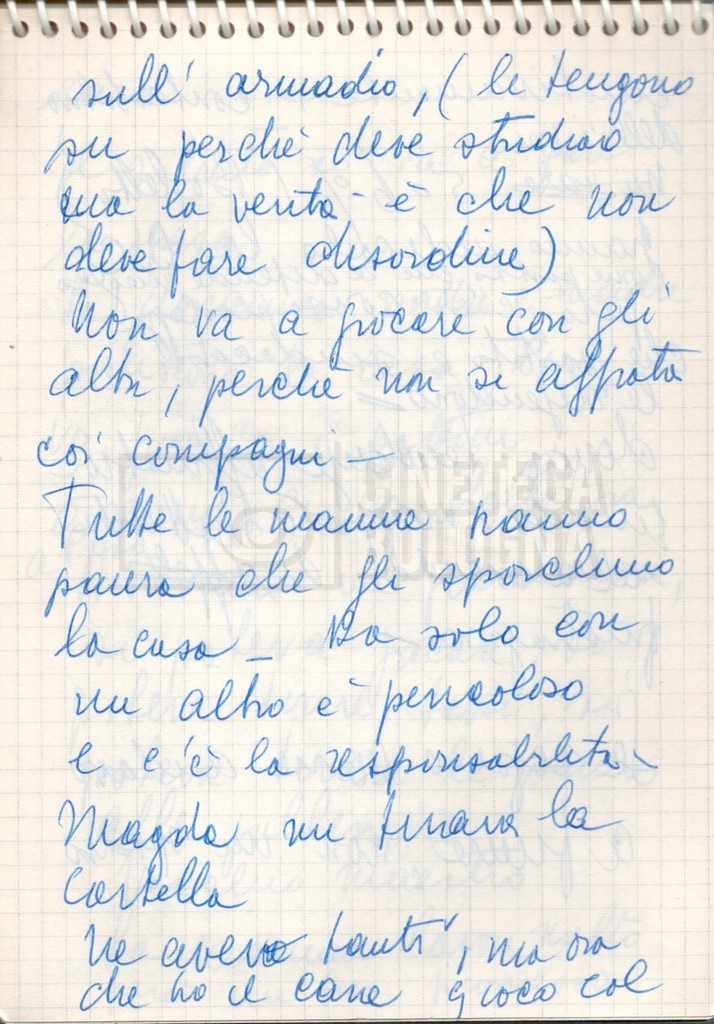 sull' armadio, (le tengono
su perchè deve studiare
ma la verità è che non
deve fare disordine)
Non va a giocare con gli
altri, perchè non si affiata
coi compagni –
Tutte le mamme hanno
paura che gli sporchino
la casa – Da solo con
un altro è pericoloso
e c'è la responsabilità –
Magda mi tirava la
cartella
Ne avevo tanti, ma ora
che ho il cane gioco col
CINETECA
BOLOGNA